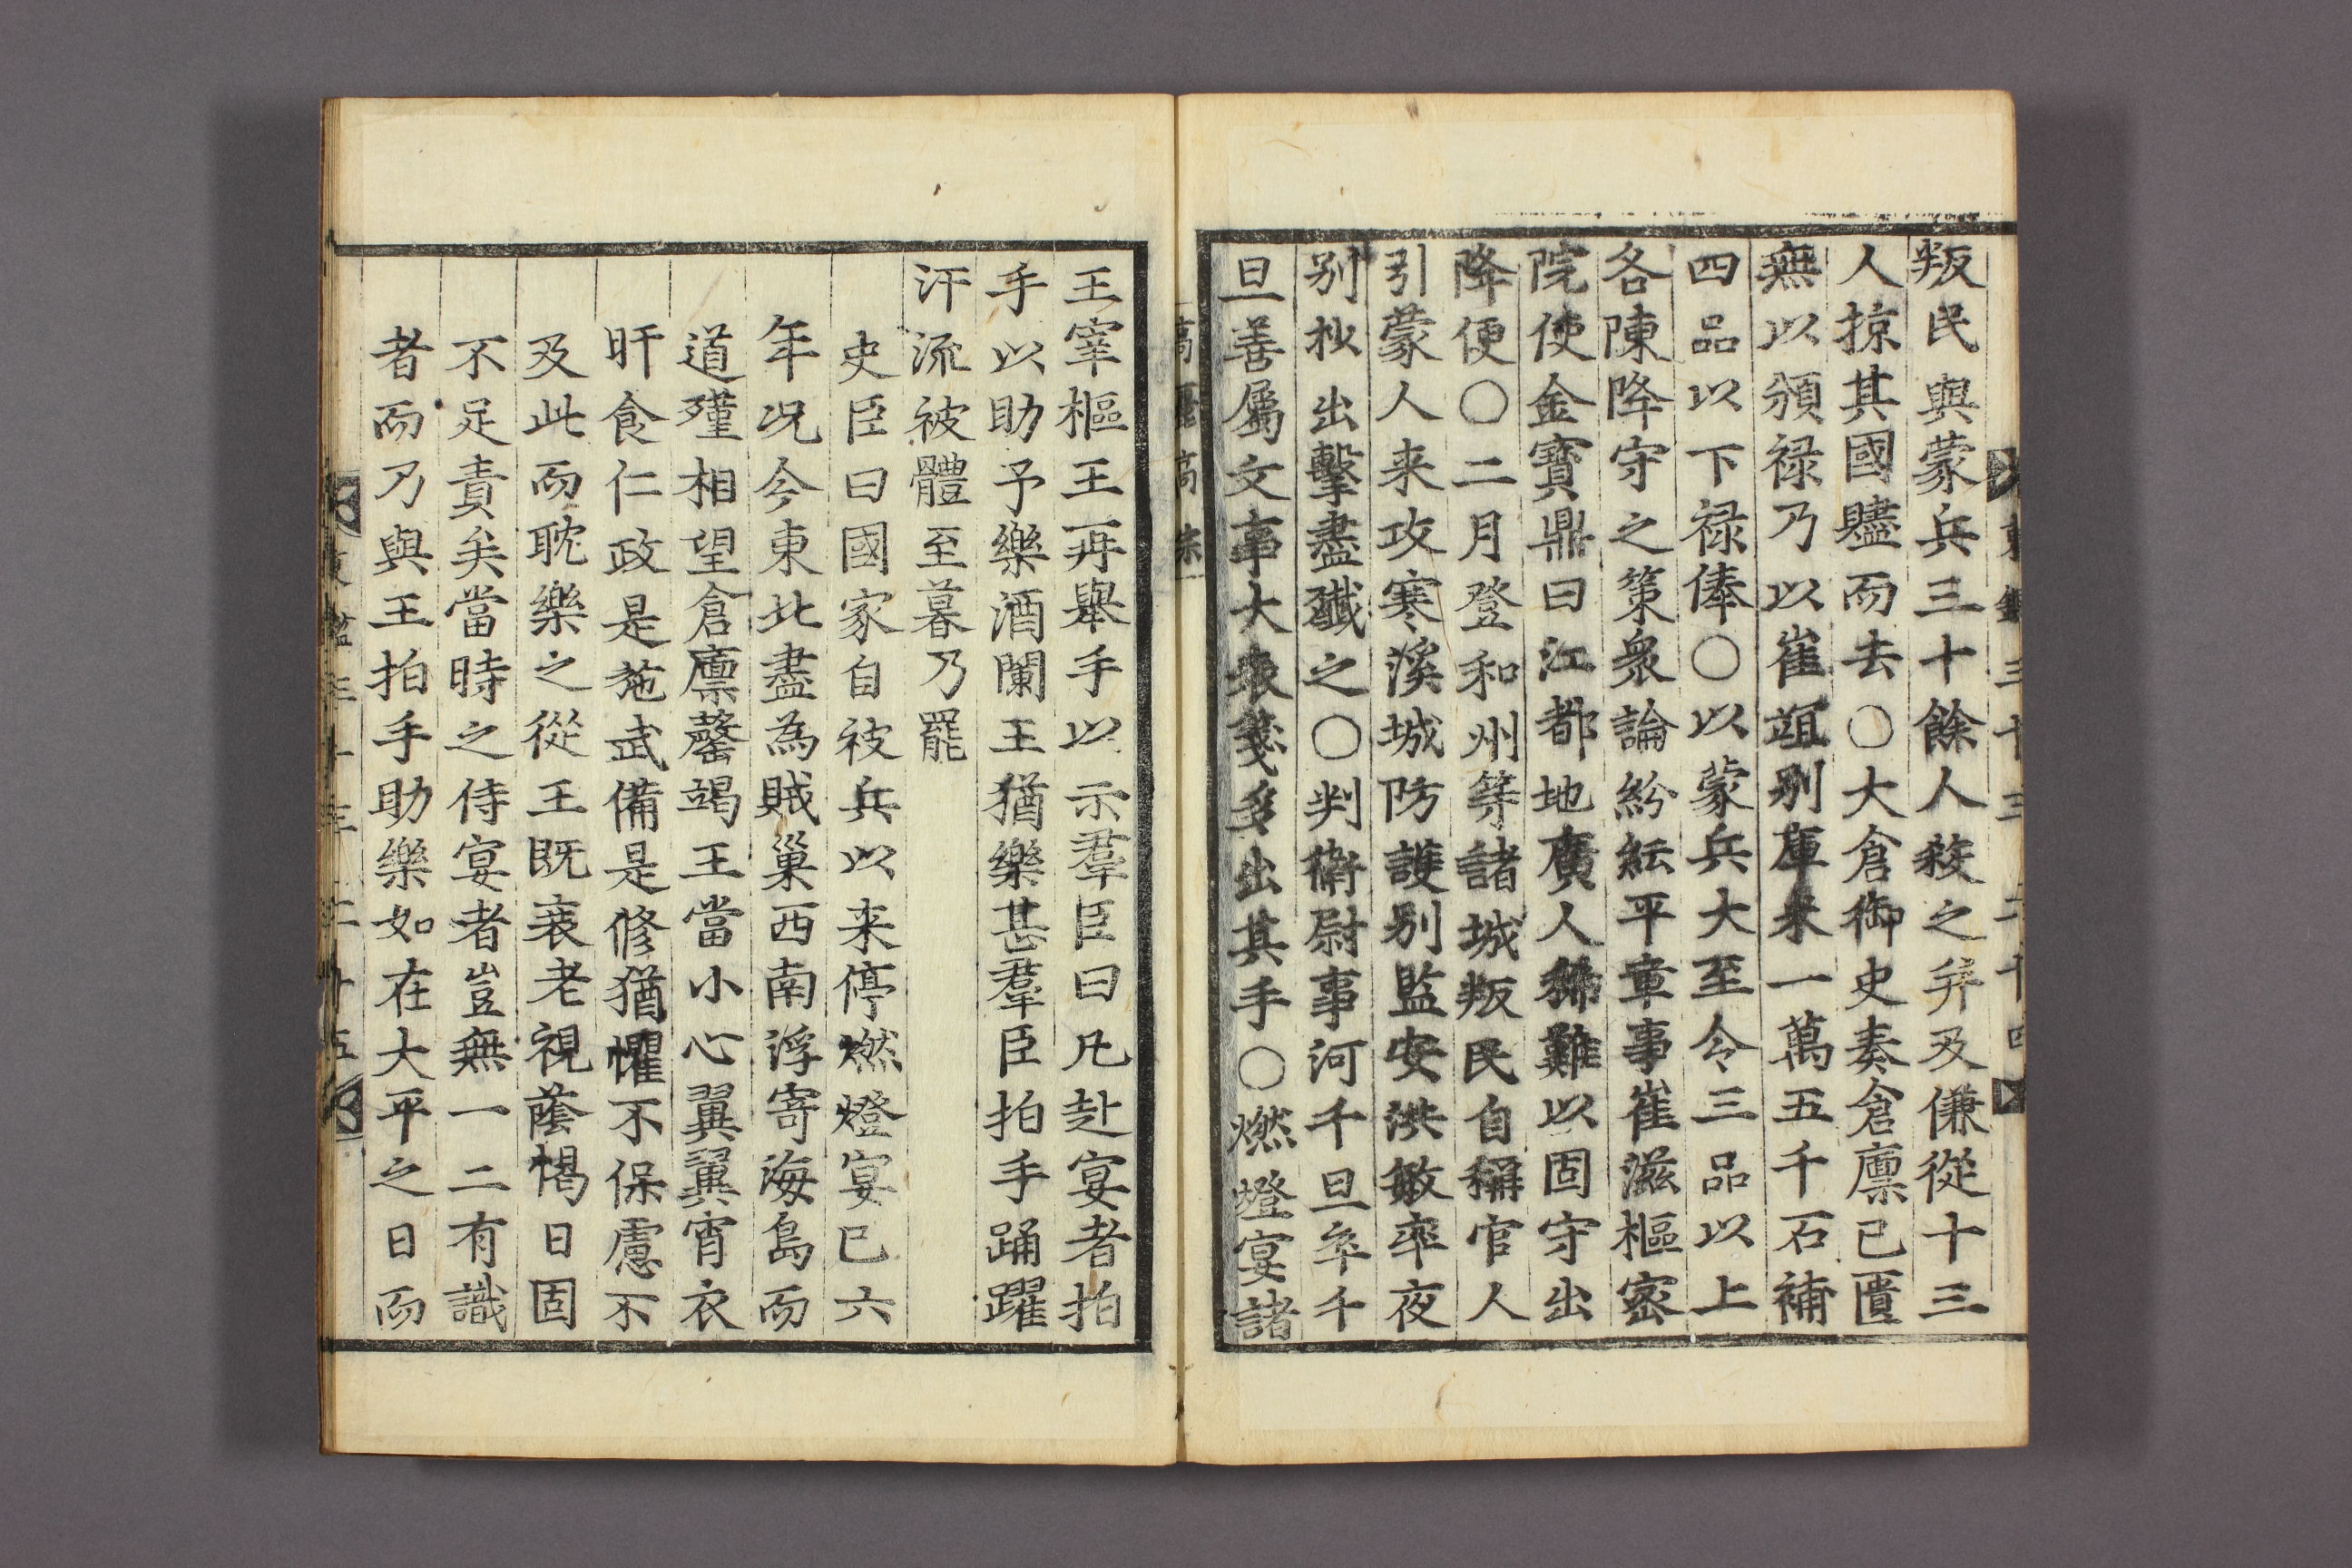 叛民與蒙兵三十餘人殺之并及傔從十三
人掠其國贐而去○大倉御史奏倉廪已匱
無以頒禄乃以崔竩别庫米一萬五千石補
四品以下禄俸○以蒙兵大至令三品以上
各陳降守之策衆論紛紜平章事崔滋樞密
院使金寶鼎曰江都地廣人稀難以固守出
降便○二月登和州等諸城叛民自稱官人
引蒙人来攻寒溪城防護别監安洪敏率夜
别抄出擊盡殲之○判衛尉事河千旦卒千
旦善屬文事大表箋多出其手○燃燈宴諸
高麗高宗
王宰樞王再舉手以示羣臣曰凡赴宴者拍
手以助予樂酒闌王猶樂甚羣臣拍手踊躍
汗流被體至暮乃罷
史臣曰國家自被兵以来停燃燈宴已六
年况今東北盡為賊巢西南浮寄海島而
道殣相望倉廪罄竭王當小心翼翼宵衣
旰食仁政是施武備是修猶懼不保慮不
及此而耽樂之從王既衰老視蔭愒日固
不足責矣當時之侍宴者豈無一二有識
者而乃與王拍手助樂如在大平之日而